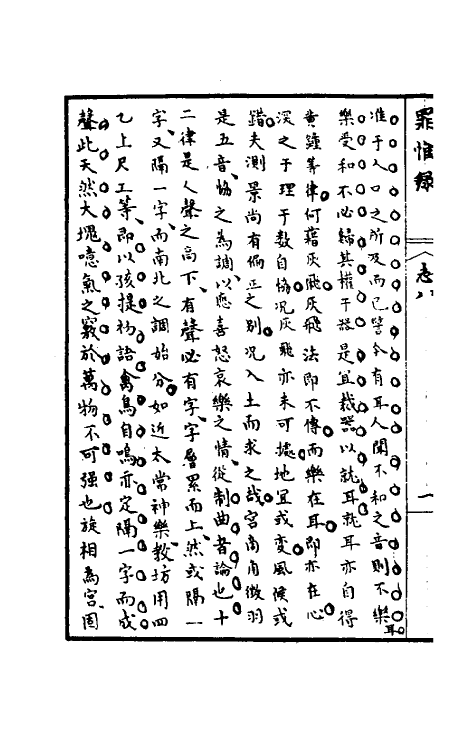 罪惟録
志八
一
准于人口之所及而已譬今有耳人聞不和之音則不樂耳
樂受和不必歸其權于器是宜裁器以就耳就耳亦自得
黄鐘筭律何藉灰飛灰飛法即不傳而樂在耳即亦在心
深之于理于數自恊况灰飛亦未可㨿地宜或變風候或
錯夫測景尚有偏正之别况入土而求之哉宫商角徵羽
是五音恊之為調以應喜怒哀樂之情從制曲者論也十
二律是人聲之高下有聲必有字字層累而上然或隔一
字又隔一字而南北之調始分如近太常神樂教坊用四
乙上尺工等即以孩提初語禽鳥自鳴亦定隔一字而成
聲此天然大塊噫氣之竅於萬物不可强也旋相為宫固